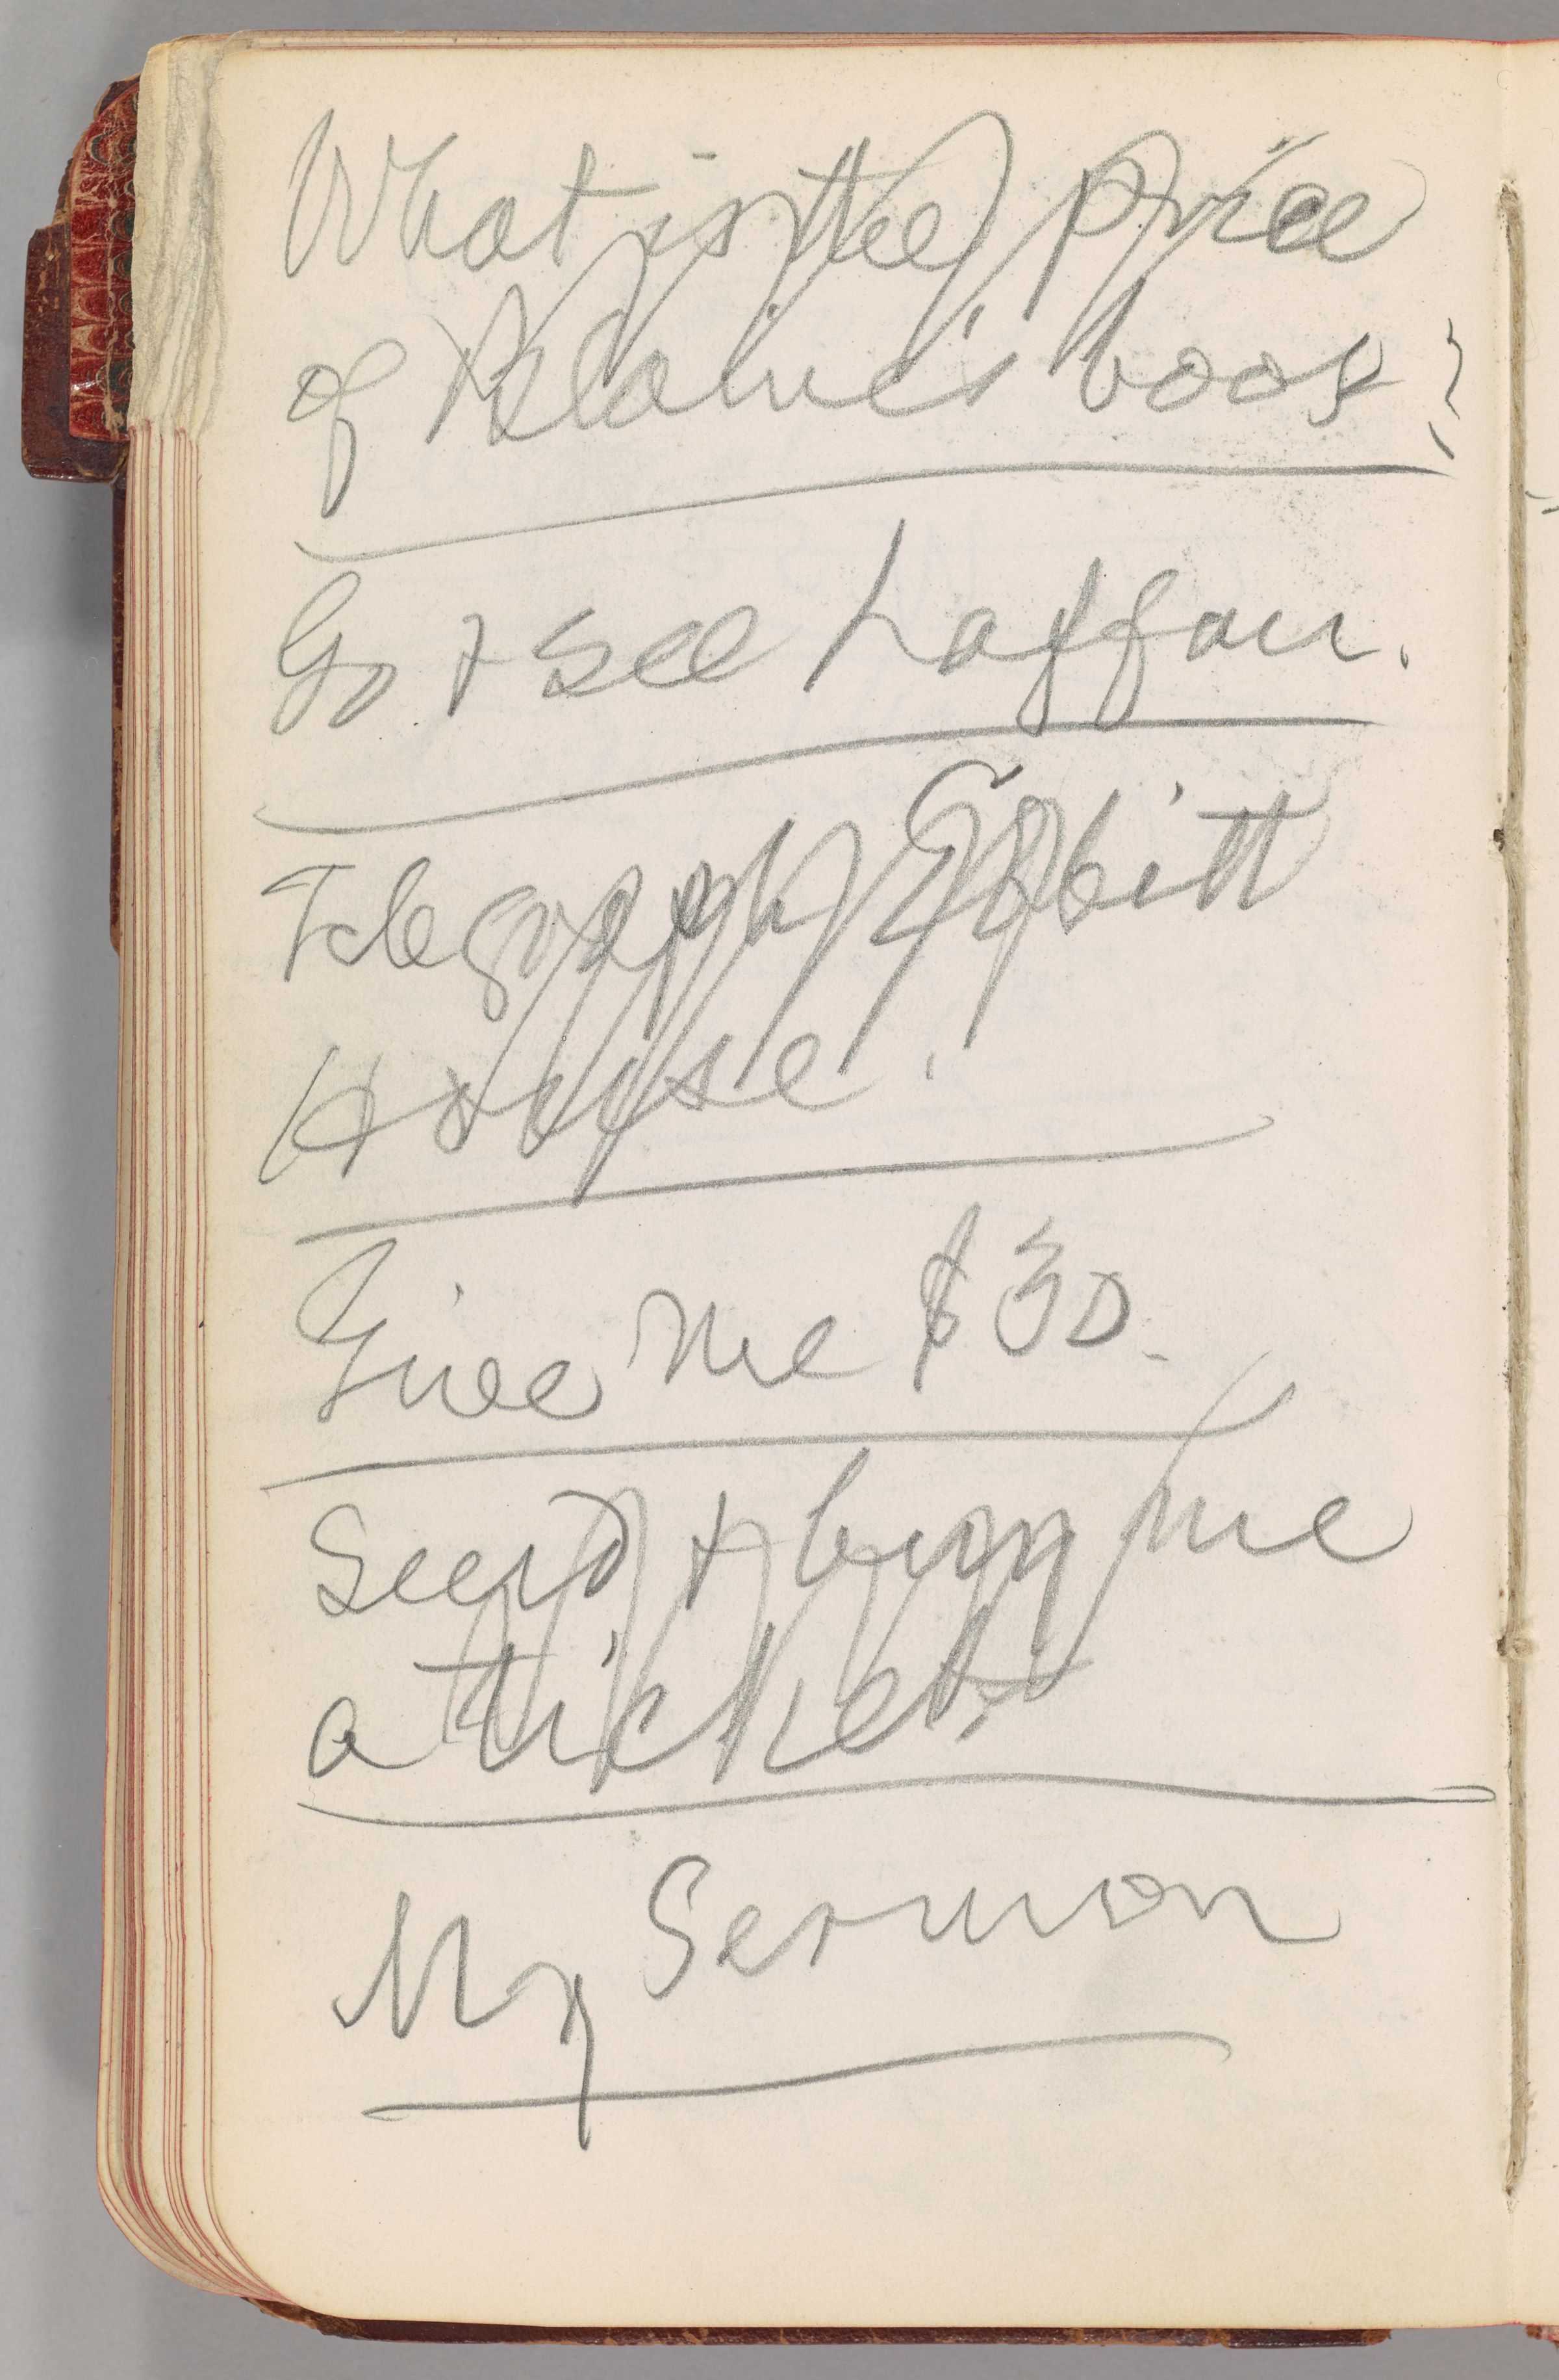 What is the price
of Blaine's book?
Go & see Laffan.
Telegraph Ebbitt
House.
Give me $30.
Send & buy me
a ticket.
My Sermon